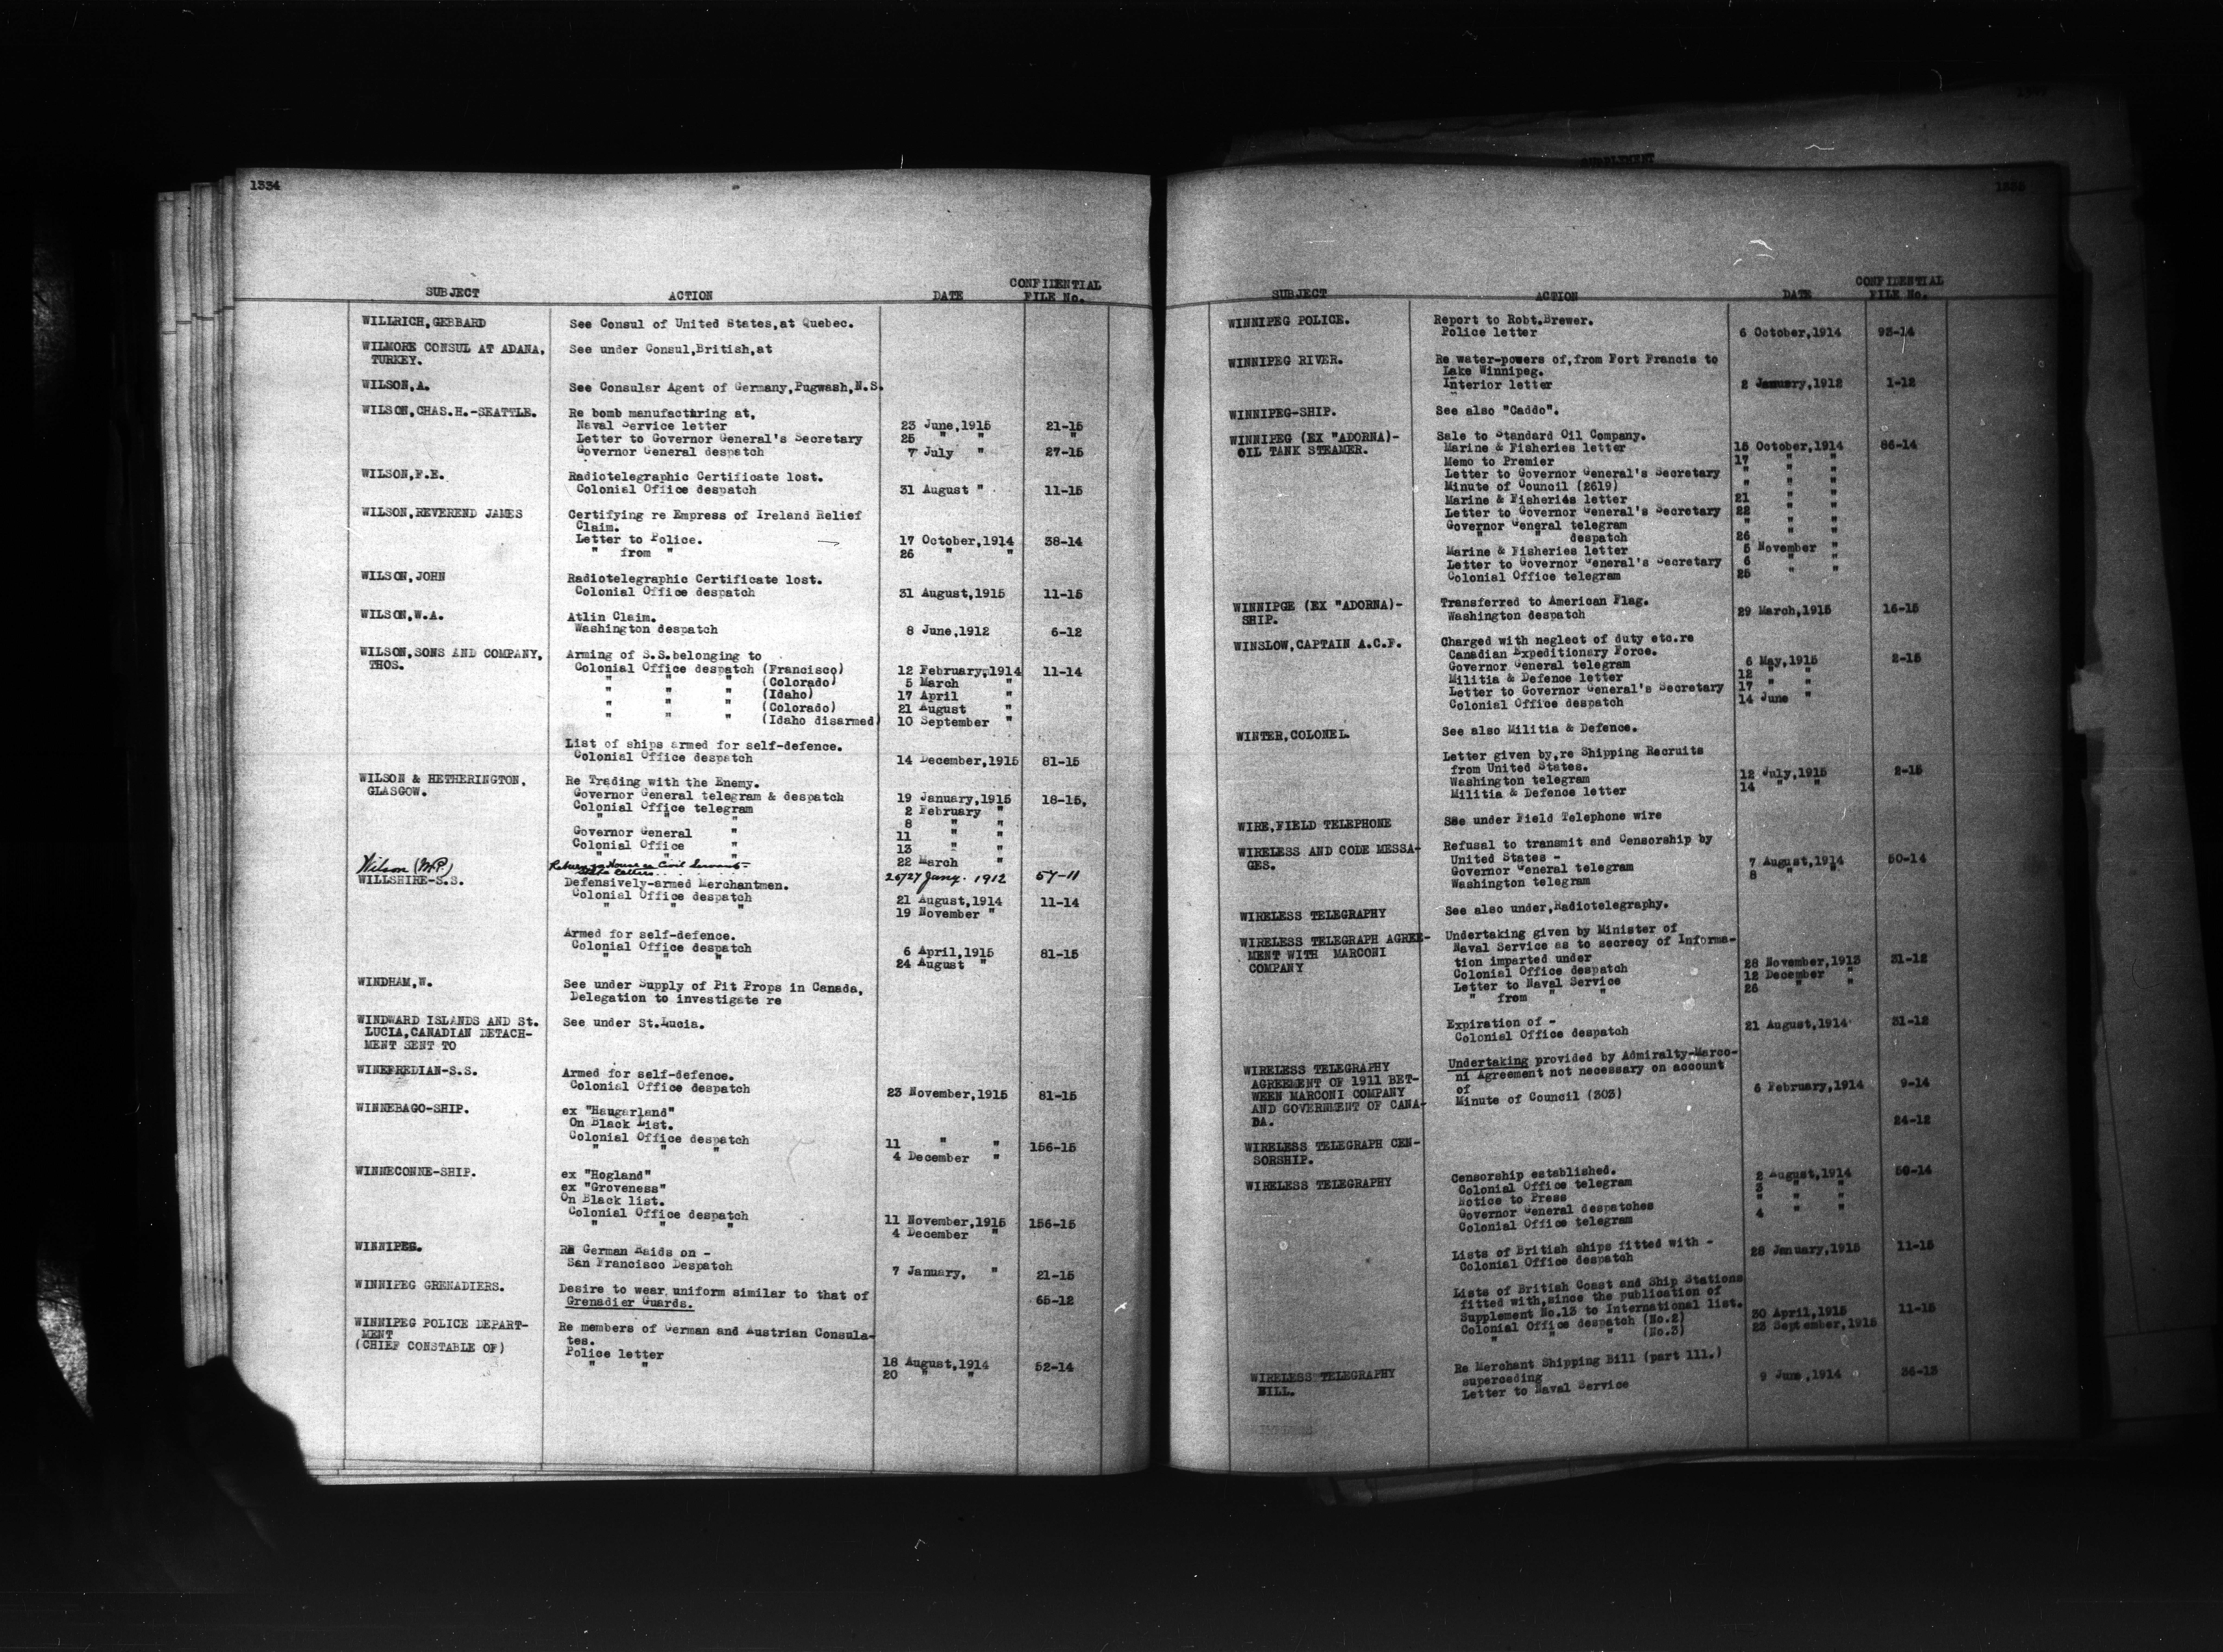 1334
SUBJECT ACTION DATE CONFIDENTIAL FILE No.
WILLRICH,GEBBARD See Consul of United States,at Quebec.
WILMORE CONSUL AT ADANA, See under Consul,British,at
TURKEY.
WILSON,A. See Consular Agent of Germany,Pugwash,N.S.
WILSON,CHAS.H.-SEATTLE. Re bomb manufacturing at,
Naval Service letter 23 June,1915 21-15
Letter to Governor General's Secretary 25 " " "
Governor General despatch 7 July " 27-15
WILSON,F.E. Radiotelegraphic Certificate lost.
Colonial Office despatch 31 August " 11-15
WILSON,REVEREND JAMES Certifying re Empress of Ireland Relief
Claim.
Letter to Police. 17 October,1914 38-14
" from " 26 " "
WILSON,JOHN Radiotelegraphic Certificate lost.
Colonial Office despatch 31 August,1915 11-15
WILSON,W.A. Atlin Claim.
Washington despatch 8 June,1912 6-12
WILSON,SONS AND COMPANY, Arming of S.S.belonging to
THOS. Colonial Office despatch (Francisco) 12 February,1914 11-14
" " " (Colorado) 5 March "
" " " (Idaho) 17 April "
" " " (Colorado) 21 August "
" " " (Idaho disarmed) 10 September "
List of ships armed for self-defence.
Colonial Office despatch 14 December,1915 81-15
WILSON & HETHERINGTON, Re Trading with the Enemy.
GLASGOW. Governor General telegram & despatch 19 January,1915 18-15,
Colonial Office telegram 2 February "
" " " 8 " "
Governor General " 11 " "
Colonial Office " 13 " "
" " " 22 March "
Wilson (M.P.) Return to House re Civil Servants- 26/27 Jany. 1912 57-11
WILLSHIRE-S.S. Defensively-armed Merchantmen.
Colonial Office despatch 21 August,1914 11-14
" " " 19 November "
Armed for self-defence.
Colonial Office despatch 6 April,1915 81-15
" " " 24 August "
WINDHAM,W. See under Supply of Pit Props in Canada,
Delegation to investigate re
WINDWARD ISLANDS AND St. See under St.Lucia.
LUCIA,CANADIAN DETACH-
MENT SENT TO
WINEFREDIAN-S.S. Armed for self-defence.
Colonial Office despatch 23 November,1915 81-15
WINNEBAGO-SHIP. ex "Haugarland"
On Black List.
Colonial Office despatch 11 " " 156-15
" " " 4 December "
WINNECONNE-SHIP. ex "Hogland"
ex "Groveness"
On Black list.
Colonial Office despatch 11 November,1915 156-15
" " " 4 December "
WINNIPEG. Re German Raids on -
San Francisco Despatch 7 January, " 21-15
WINNIPEG GRENADIERS. Desire to wear uniform similar to that of 65-12
Grenadier Guards.
WINNIPEG POLICE DEPART- Re members of German and Austrian Consula-
MENT tes.
(CHIEF CONSTABLE OF) Police letter 18 August,1914 52-14
" " 20 " "
SUPPLEMENT
1335
SUBJECT ACTION DATE CONFIDENTIAL FILE No.
WINNIPEG POLICE. Report to Robt.Brewer.
Police letter 6 October,1914 93-14
WINNIPEG RIVER. Re water-powers of,from Fort Francis to
Lake Winnipeg.
Interior letter 2 January,1912 1-12
WINNIPEG-SHIP. See also "Caddo".
WINNIPEG (EX "ADORNA)- Sale to Standard Oil Company.
OIL TANK STEAMER. Marine & Fisheries letter 15 October,1914 86-14
Memo to Premier 17 " "
Letter to Governor General's Secretary " " "
Minute of Council (2619) " " "
Marine & Fisheries letter 21 " "
Letter to Governor General's Secretary 22 " "
Governor General telegram " " "
" " despatch 26 " "
Marine & Fisheries letter 5 November "
Letter to Governor General's Secretary 6 " "
Colonial Office telegram 25 " "
WINNIPGE (EX "ADORNA)- Transferred to American Flag.
SHIP. Washington despatch 29 March,1915 16-15
WINSLOW,CAPTAIN A.C.F. Charged with neglect of duty etc.re
Canadian Expeditionary Force.
Governor General telegram 6 May,1915 2-15
Militia & Defence letter 12 " "
Letter to Governor General's Secretary 17 " "
Colonial Office despatch 14 June "
WINTER,COLONEL. See also Militia & Defence.
Letter given by,re Shipping Recruits
from United States.
Washington telegram 12 July,1915 2-15
Militia & Defence letter 14 " "
WIRE,FIELD TELEPHONE See under Field Telephone wire
WIRELESS AND CODE MESSA- Refusal to transmit and Censorship by
GES. United States -
Governor General telegram 7 August,1914 50-14
Washington telegram 8 " "
WIRELESS TELEGRAPHY See also under,Radiotelegraphy.
WIRELESS TELEGRAPH AGREE- Undertaking given by Minister of
MENT WITH MARCONI Naval Service as to secrecy of Informa-
COMPANY tion imparted under
Colonial Office despatch 28 November,1913 31-12
Letter to Naval Service 12 December "
" from " " 26 " "
Expiration of -
Colonial Office despatch 21 August,1914 31-12
WIRELESS TELEGRAPHY Undertaking provided by Admiralty-Marco-
AGREEMENT OF 1911 BET- ni Agreement not necessary on account
WEEN MARCONI COMPANY of
AND GOVERNMENT OF CANA- Minute of Council (303) 6 February,1914 9-14
DA.
24-12
WIRELESS TELEGRAPH CEN-
SORSHIP.
WIRELESS TELEGRAPHY Censorship established.
Colonial Office telegram 2 August,1914 50-14
Notice to Press 3 " "
Governor General despatches " " "
Colonial Office telegram 4 " "
Lists of British ships fitted with -
Colonial Office despatch 28 January,1915 11-15
Lists of British Coast and Ship Stations
fitted with,since the publication of
Supplement No.13 to International list.
Colonial Office despatch (No.2) 30 April,1915 11-15
" " " (No.3) 23 September,1915
WIRELESS TELEGRAPHY Re Merchant Shipping Bill (part 111.)
BILL. superceding
Letter to Naval Service 9 June,1914 36-13